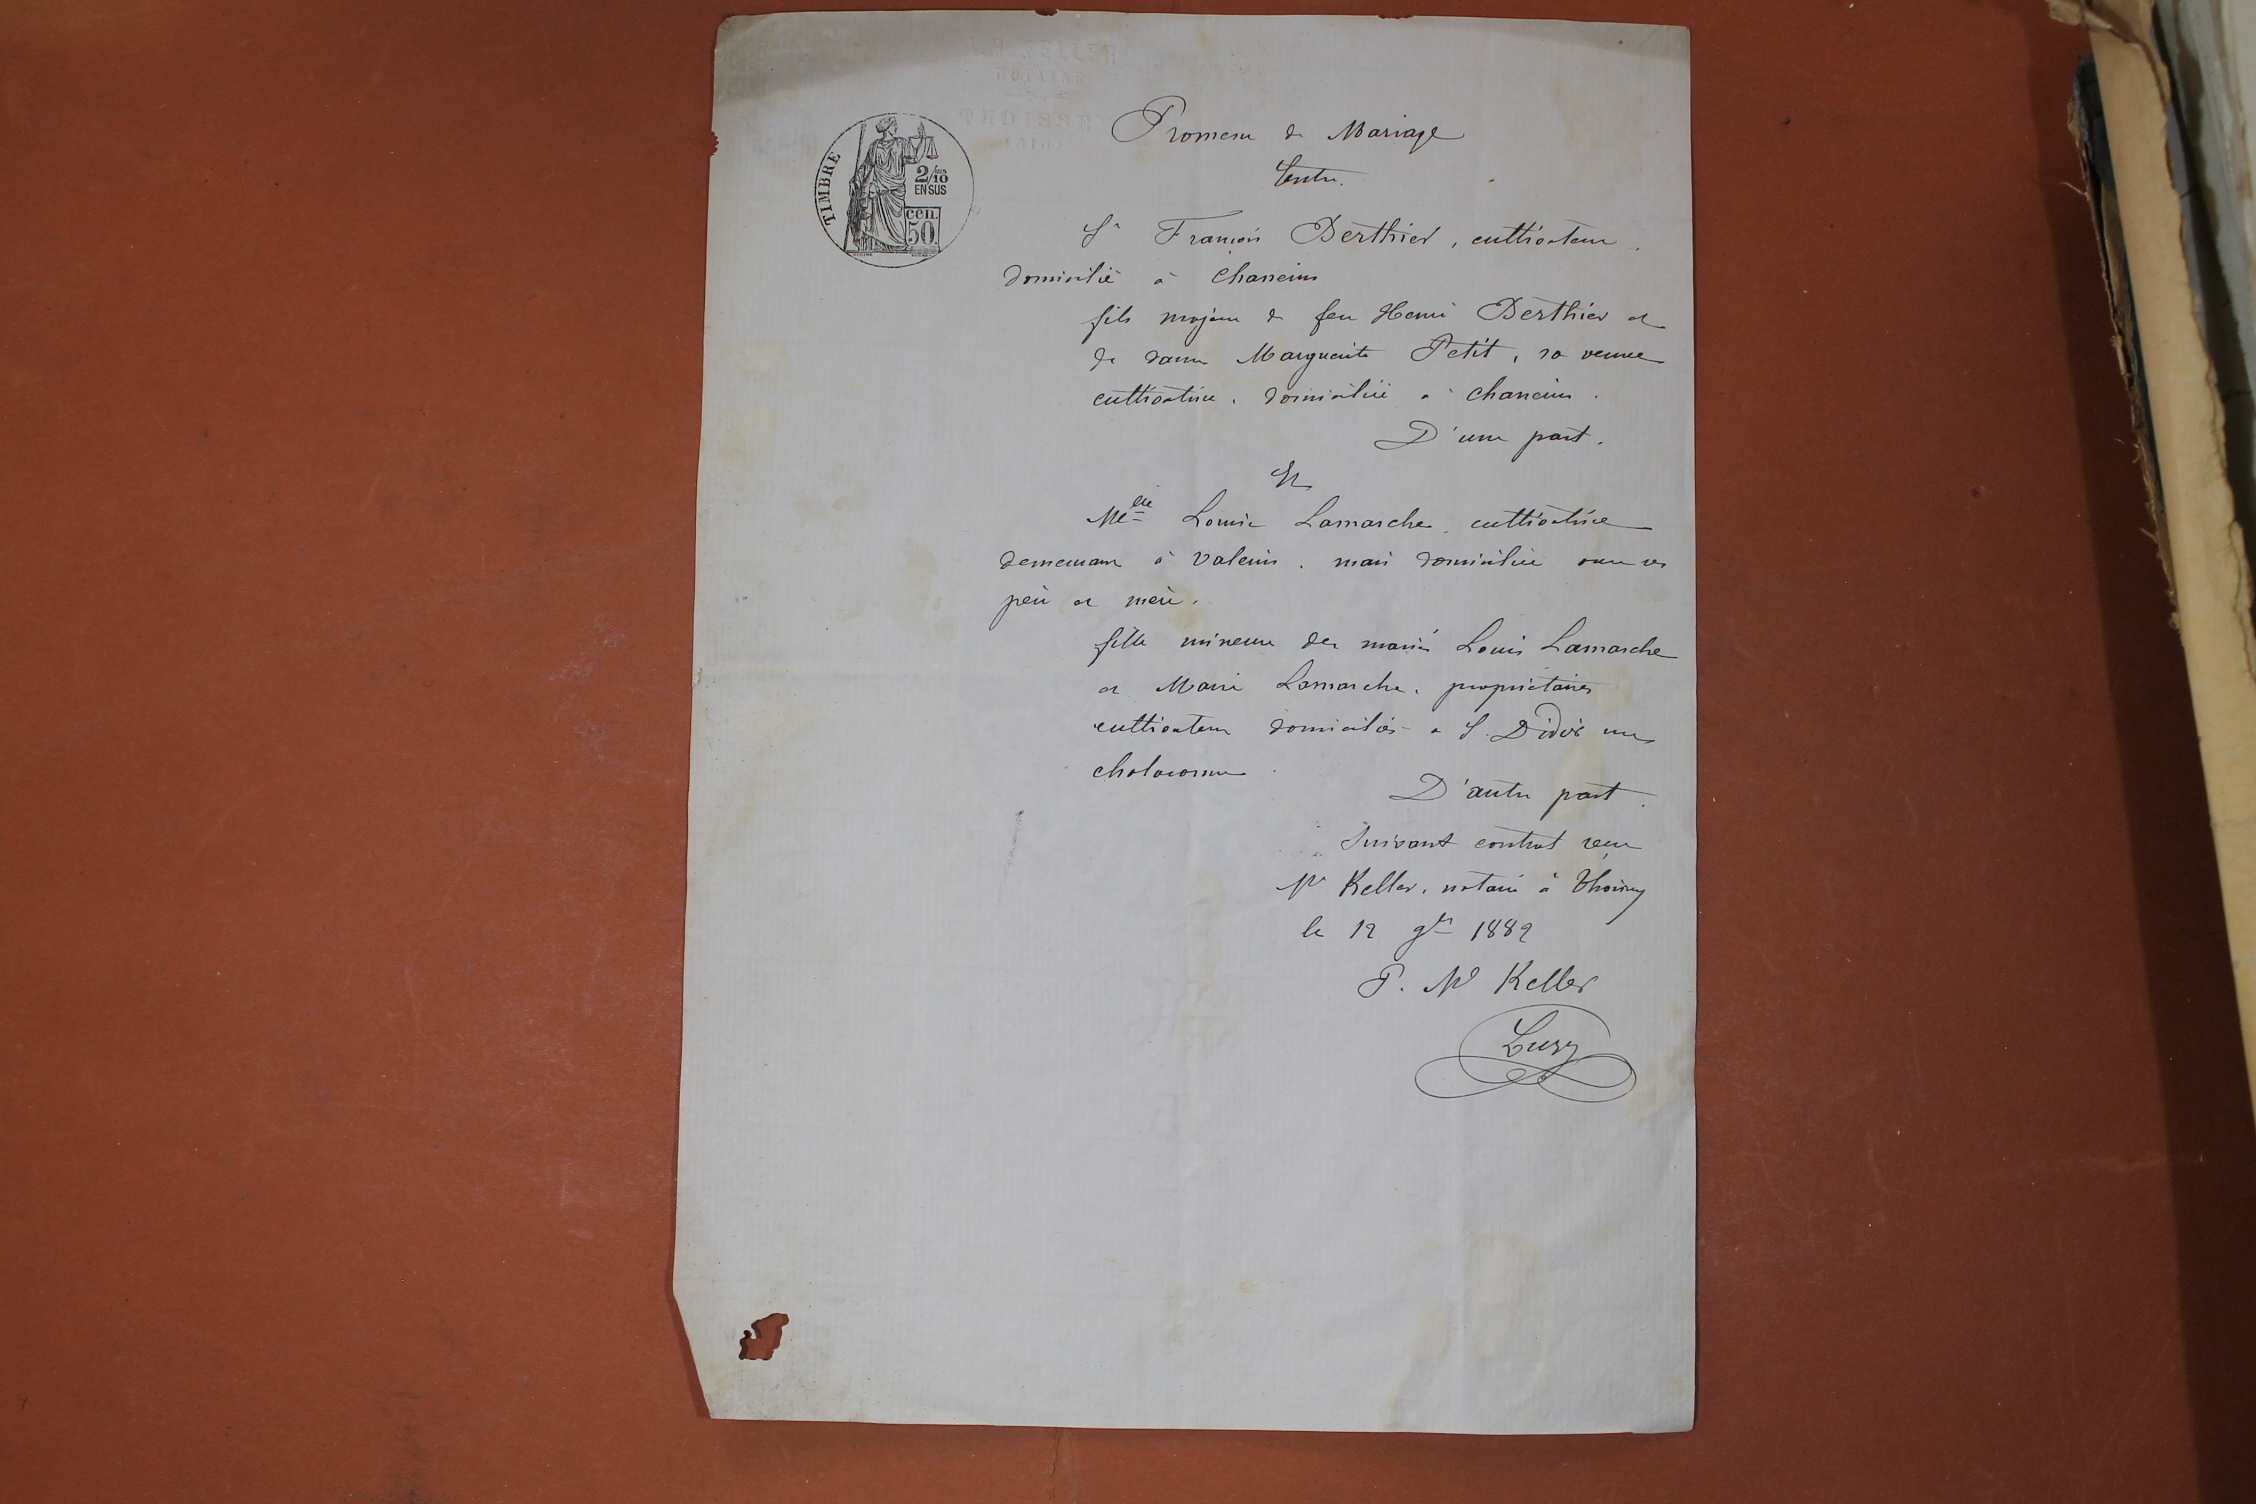 TIMBRE
2/10
EN SUS
cen.
50.
Promesse de Mariage
Entre.
Sr François Berthier, cultivateur,
domicilié à Chaneins
fils majeur de feu Henri Berthier et
de dame Marguerite Petit, sa veuve
cultivatrice, domiciliée à Chaneins.
D'une part.
Et
Melle Louise Lamarche, cultivatrice
demeurant à Valeins, mais domiciliée avec ses
père et mère.
fille mineure des mariés Louis Lamarche
et Marie Lamarche, propriétaires
cultivateurs domiciliés à St Didier sur
Chalaronne
D'autre part.
Suivant contrat reçu
Me Keller, notaire à Thoissey
le 12 9bre 1882
P. Me Keller